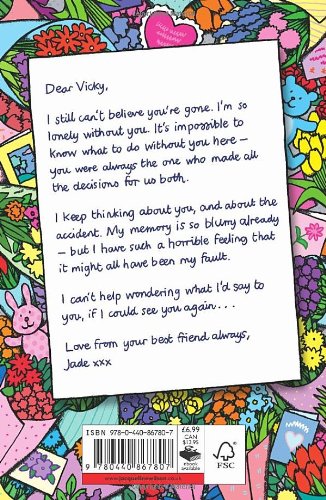 Dear Vicky,
I still can't believe you're gone. I'm so
lonely without you. It's impossible to
know what to do without you here –
you were always the one who made all
the decisions for us both.
I keep thinking about you, and about the
accident. My memory is so blurry already
– but I have such a horrible feeling that
it might all have been my fault.
I can't help wondering what I'd say to
you, if I could see you again . . .
Love from your best friend always,
Jade xxx
ISBN 978-0-440-86780-7
9 780440 867807
£6.99
CAN
$13.95
ebook
available
FSC
www.jacquelinewilson.co.uk